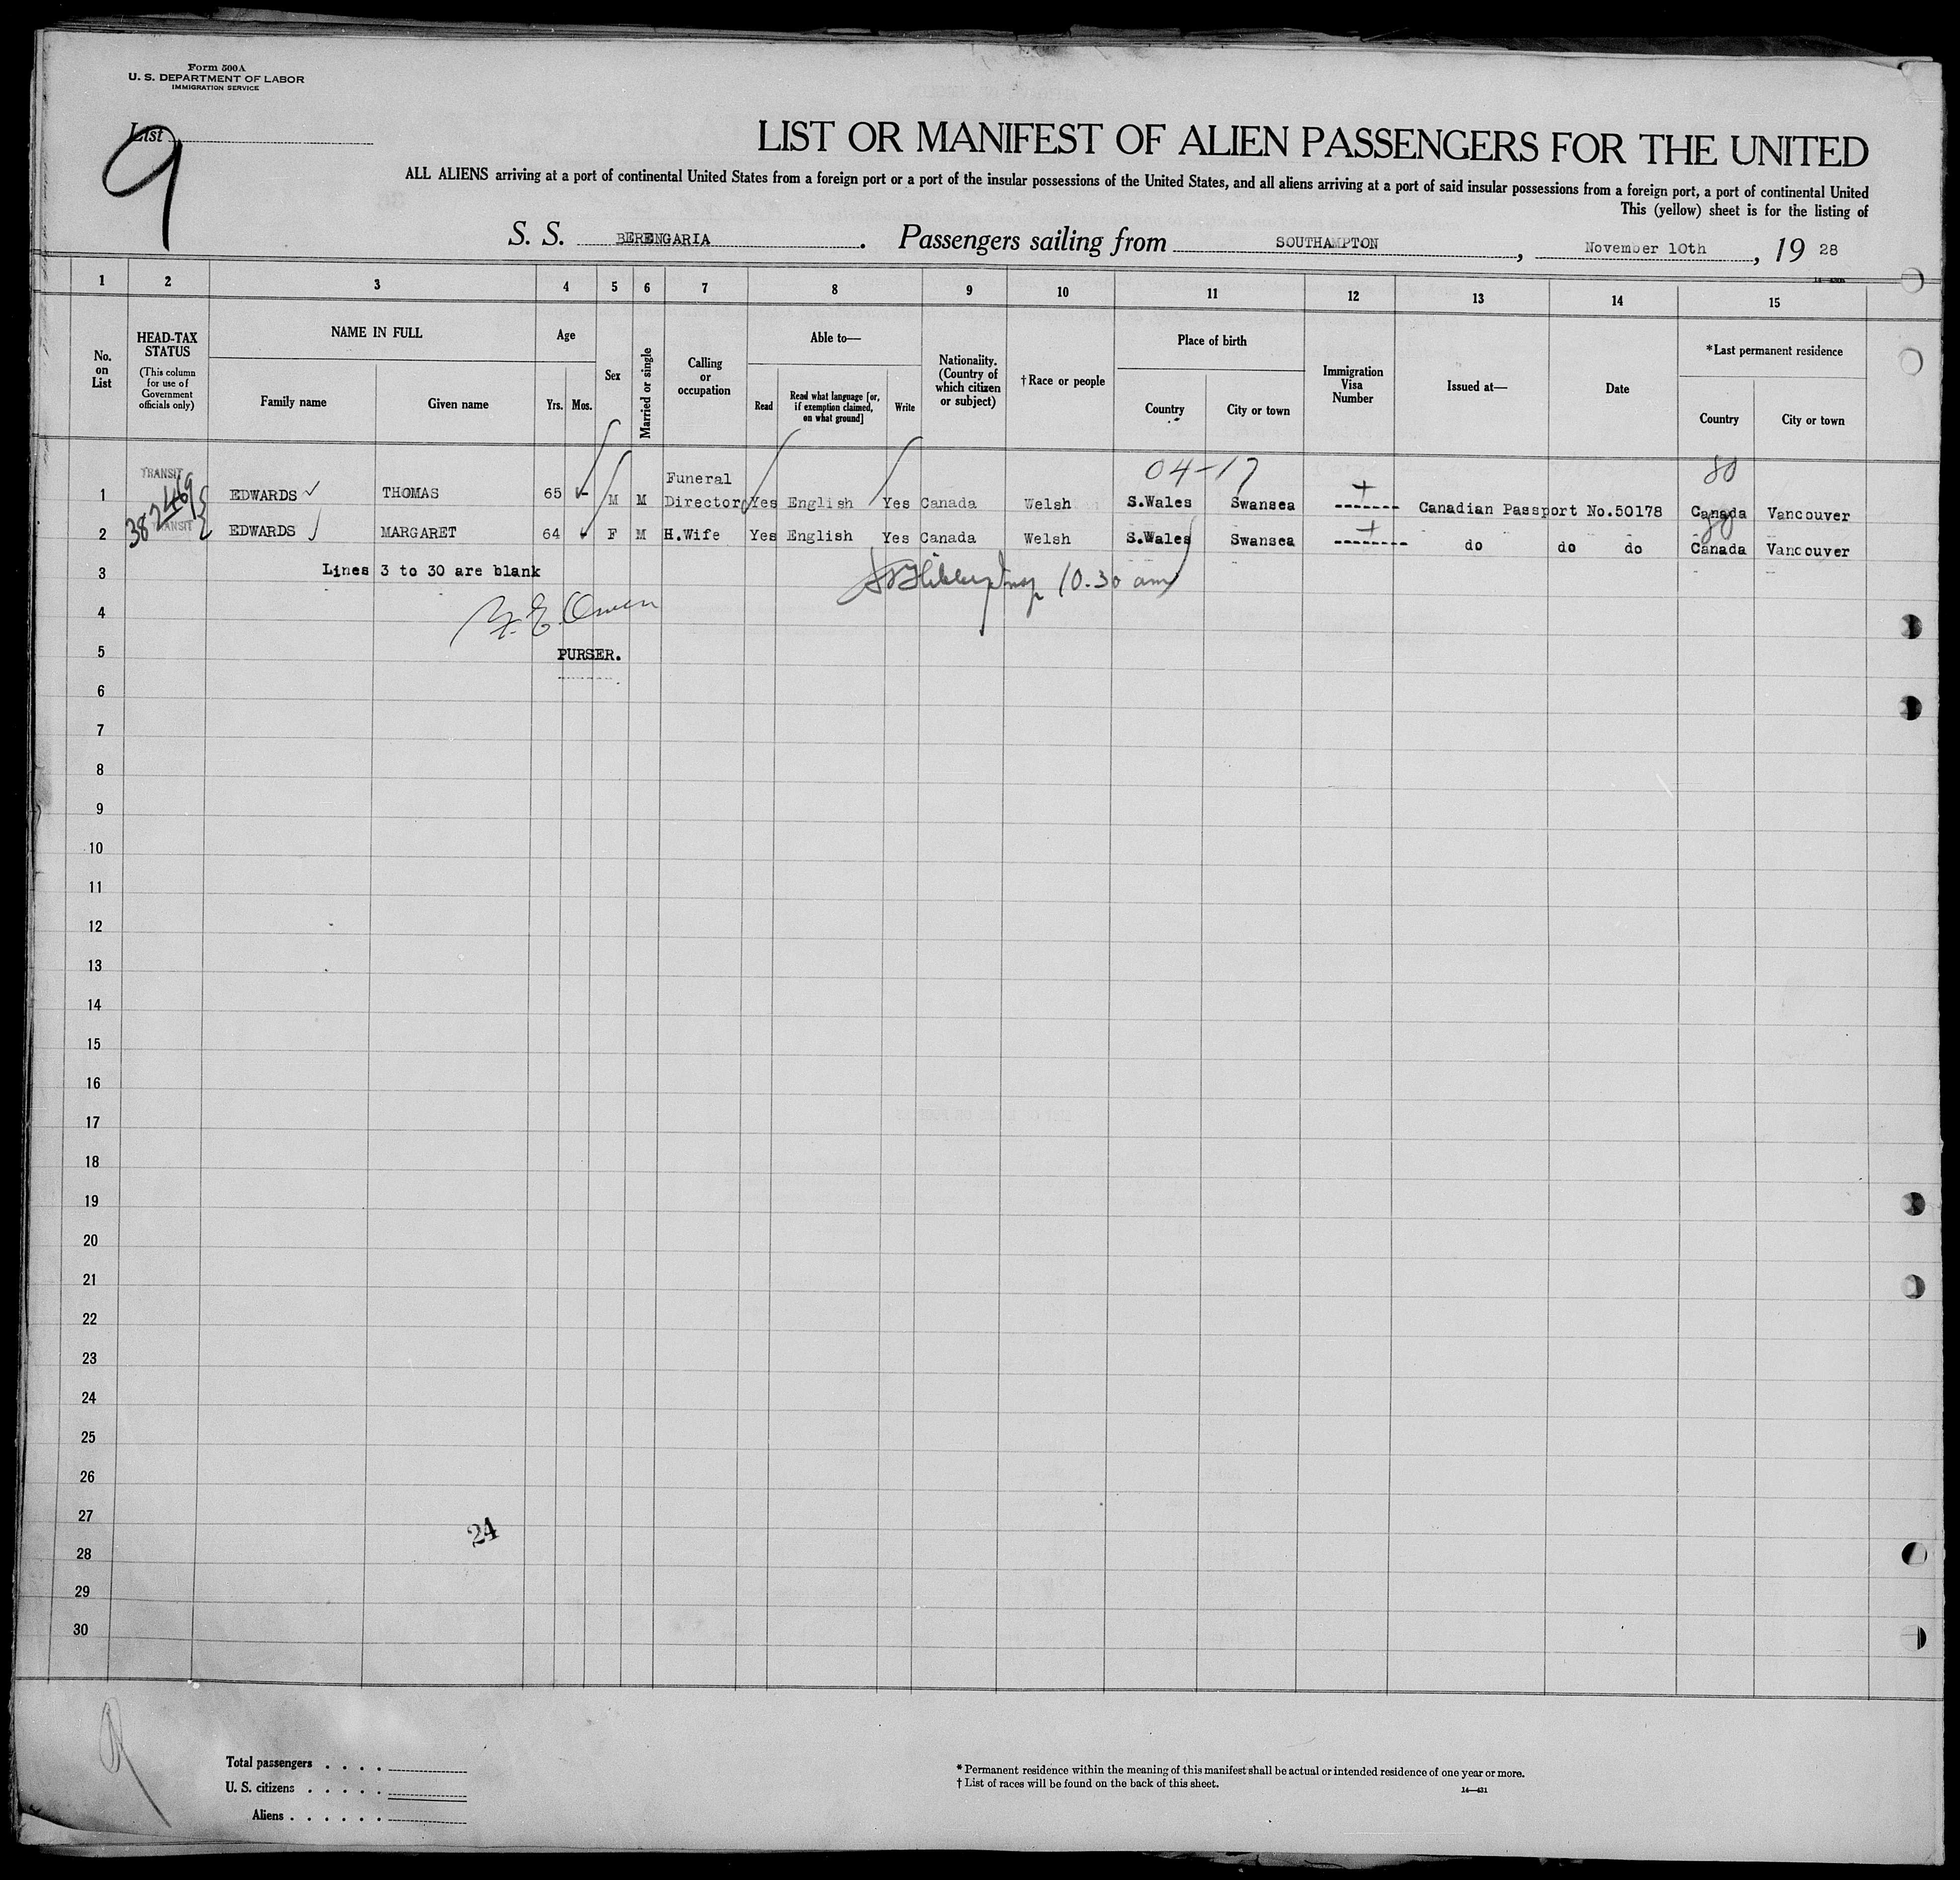 Form 500A
U. S. DEPARTMENT OF LABOR
IMMIGRATION SERVICE
List
9
LIST OR MANIFEST OF ALIEN PASSENGERS FOR THE UNITED
ALL ALIENS arriving at a port of continental United States from a foreign port or a port of the insular possessions of the United States, and all aliens arriving at a port of said insular possessions from a foreign port, a port of continental United
This (yellow) sheet is for the listing of
S. S. BERENGARIA. Passengers sailing from SOUTHAMPTON, November 10th, 19 28
1 2 3 4 5 6 7 8 9 10 11 12 13 14 15
No. on List
HEAD-TAX STATUS
(This column for use of Government officials only)
NAME IN FULL
Family name Given name
Age
Yrs. Mos.
Sex
Married or single
Calling or occupation
Able to—
Read
Read what language [or, if exemption claimed, on what ground]
Write
Nationality. (Country of which citizen or subject)
†Race or people
Place of birth
Country City or town
Immigration Visa Number
Issued at—
Date
*Last permanent residence
Country City or town
04-17 80
1 TRANSIT EDWARDS THOMAS 65 M M Funeral Director Yes English Yes Canada Welsh S.Wales Swansea ------- Canadian Passport No.50178 Canada Vancouver
2 TRANSIT EDWARDS MARGARET 64 F M H.Wife Yes English Yes Canada Welsh S.Wales Swansea -------- do do do Canada Vancouver
3 Lines 3 to 30 are blank
10.30 am
4 Owen
5 PURSER.
6
7
8
9
10
11
12
13
14
15
16
17
18
19
20
21
22
23
24
25
26
27
24
28
29
30
Total passengers . . . .
U. S. citizens . . . . .
Aliens . . . . . .
* Permanent residence within the meaning of this manifest shall be actual or intended residence of one year or more.
† List of races will be found on the back of this sheet.
14—431